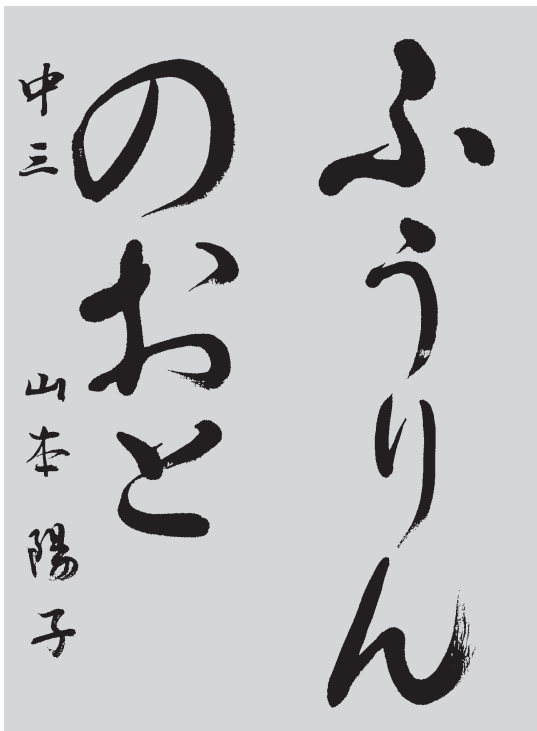 ふうりん
のおと
中三 山本陽子